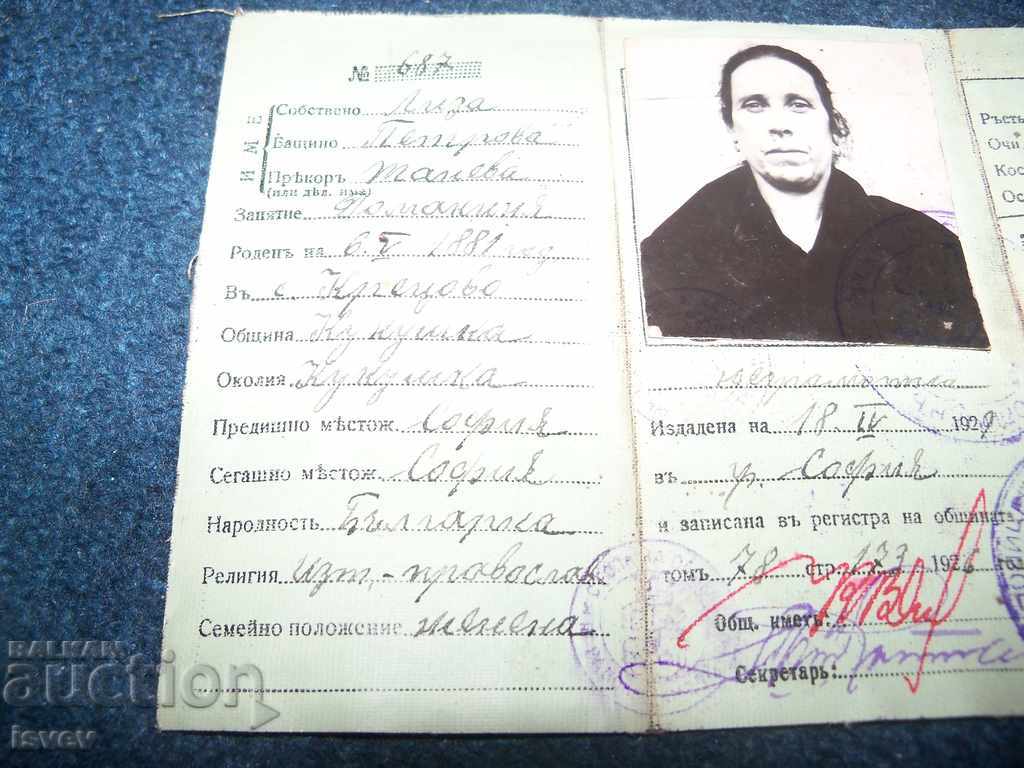 № 687
ИМЕ
Собствено Лиза
Бащино Петрова
Прѣкоръ Танева
(или дѣл. име)
Занятие Домакиня
Роденъ на 6. V 1881 год
Въ с. Крецово
Община Кукушка
Околия Кукушка
Предишно мѣстож. София
Сегашно мѣстож. София
Народность Българка
Религия Изт.-православ
Семейно положение женена
неграмотна
Издалена на 18 IV 1929
въ гр. София
и записана въ регистра на общината
томъ 78 стр. 133 1926
Общ. кметъ:
Секретарь:
Ръстъ
Очи
Кос
Ос
BALKAN
auction
isvev